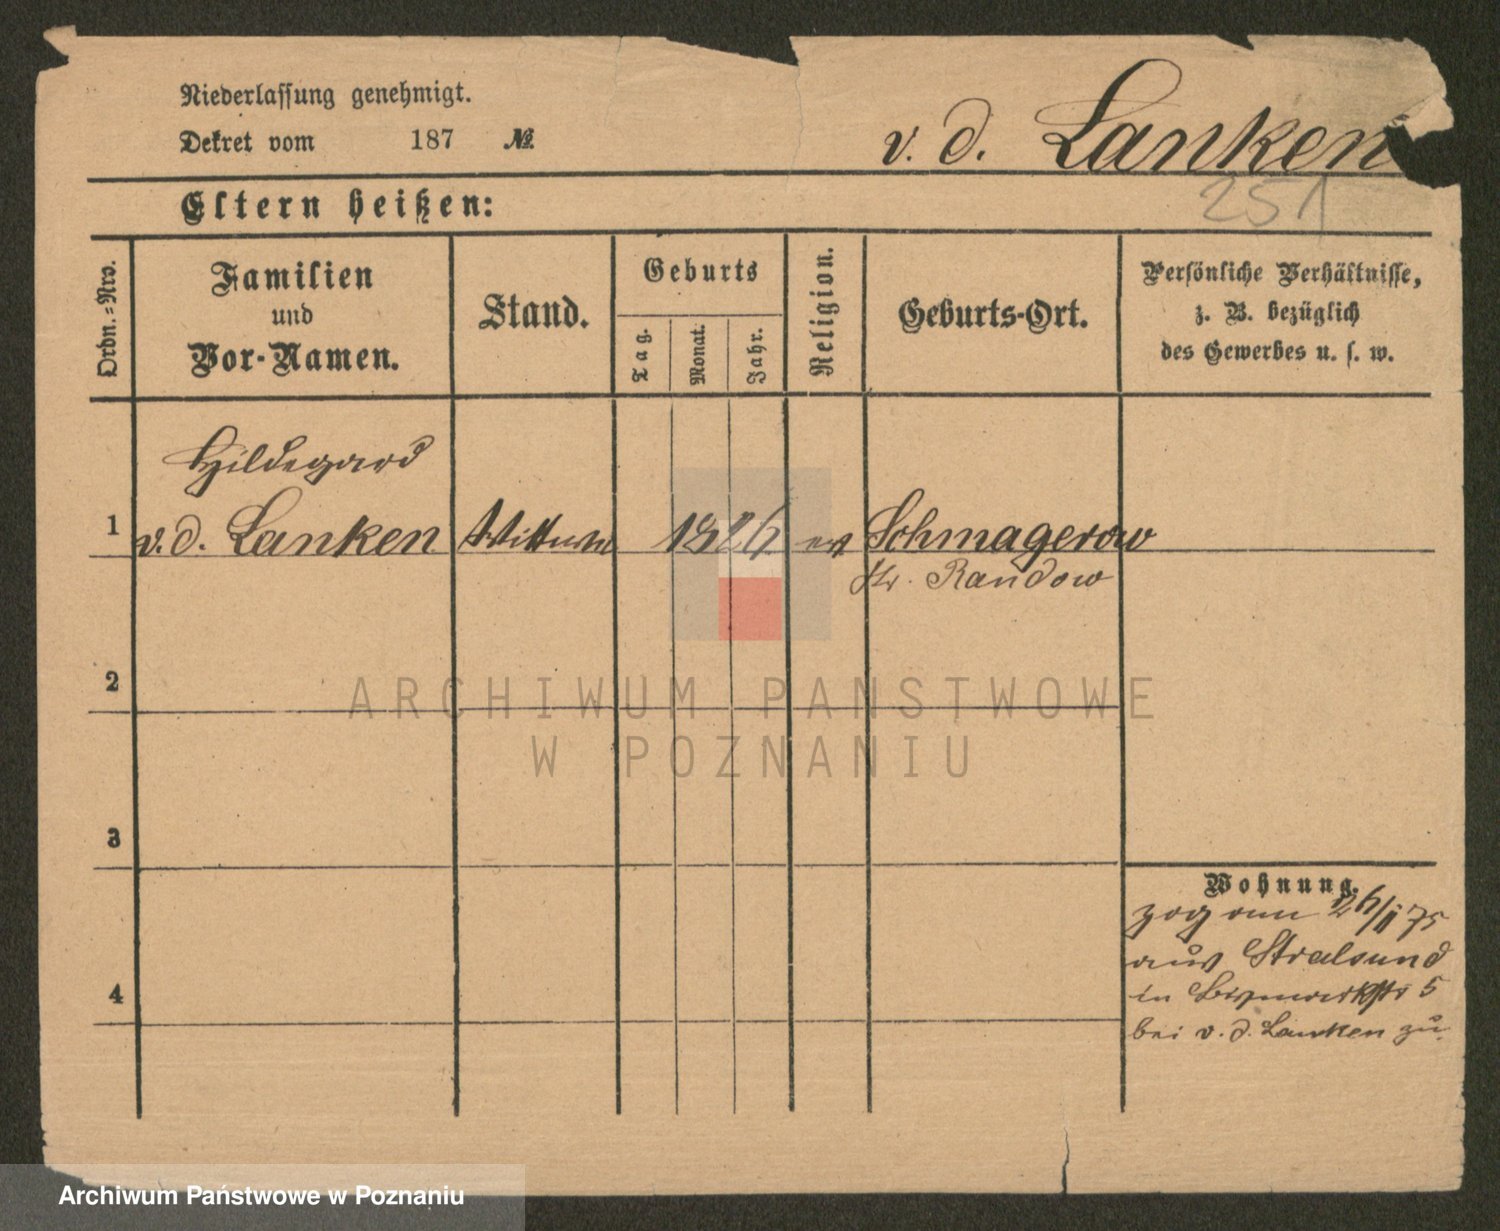 Niederlassung genehmigt.
Dekret vom 187 №
v. d. Lanken
251
Eltern heißen:
Ordn.=Nro.
Familien
und
Vor-Namen.
Stand.
Geburts
Tag.
Monat.
Jahr.
Religion.
Geburts-Ort.
Persönliche Verhältnisse,
z. B. bezüglich
des Gewerbes u. s. w.
Hildegard
1 v. d. Lanken Wittwe 1826 ev Schmagerow
Kr. Randow
2
ARCHIWUM PAŃSTWOWE
W POZNANIU
3
Wohnung.
zog am 26/II 75
aus Stralsund
in Bismarkstr 5
bei v. d. Lanken zu.
4
Archiwum Państwowe w Poznaniu